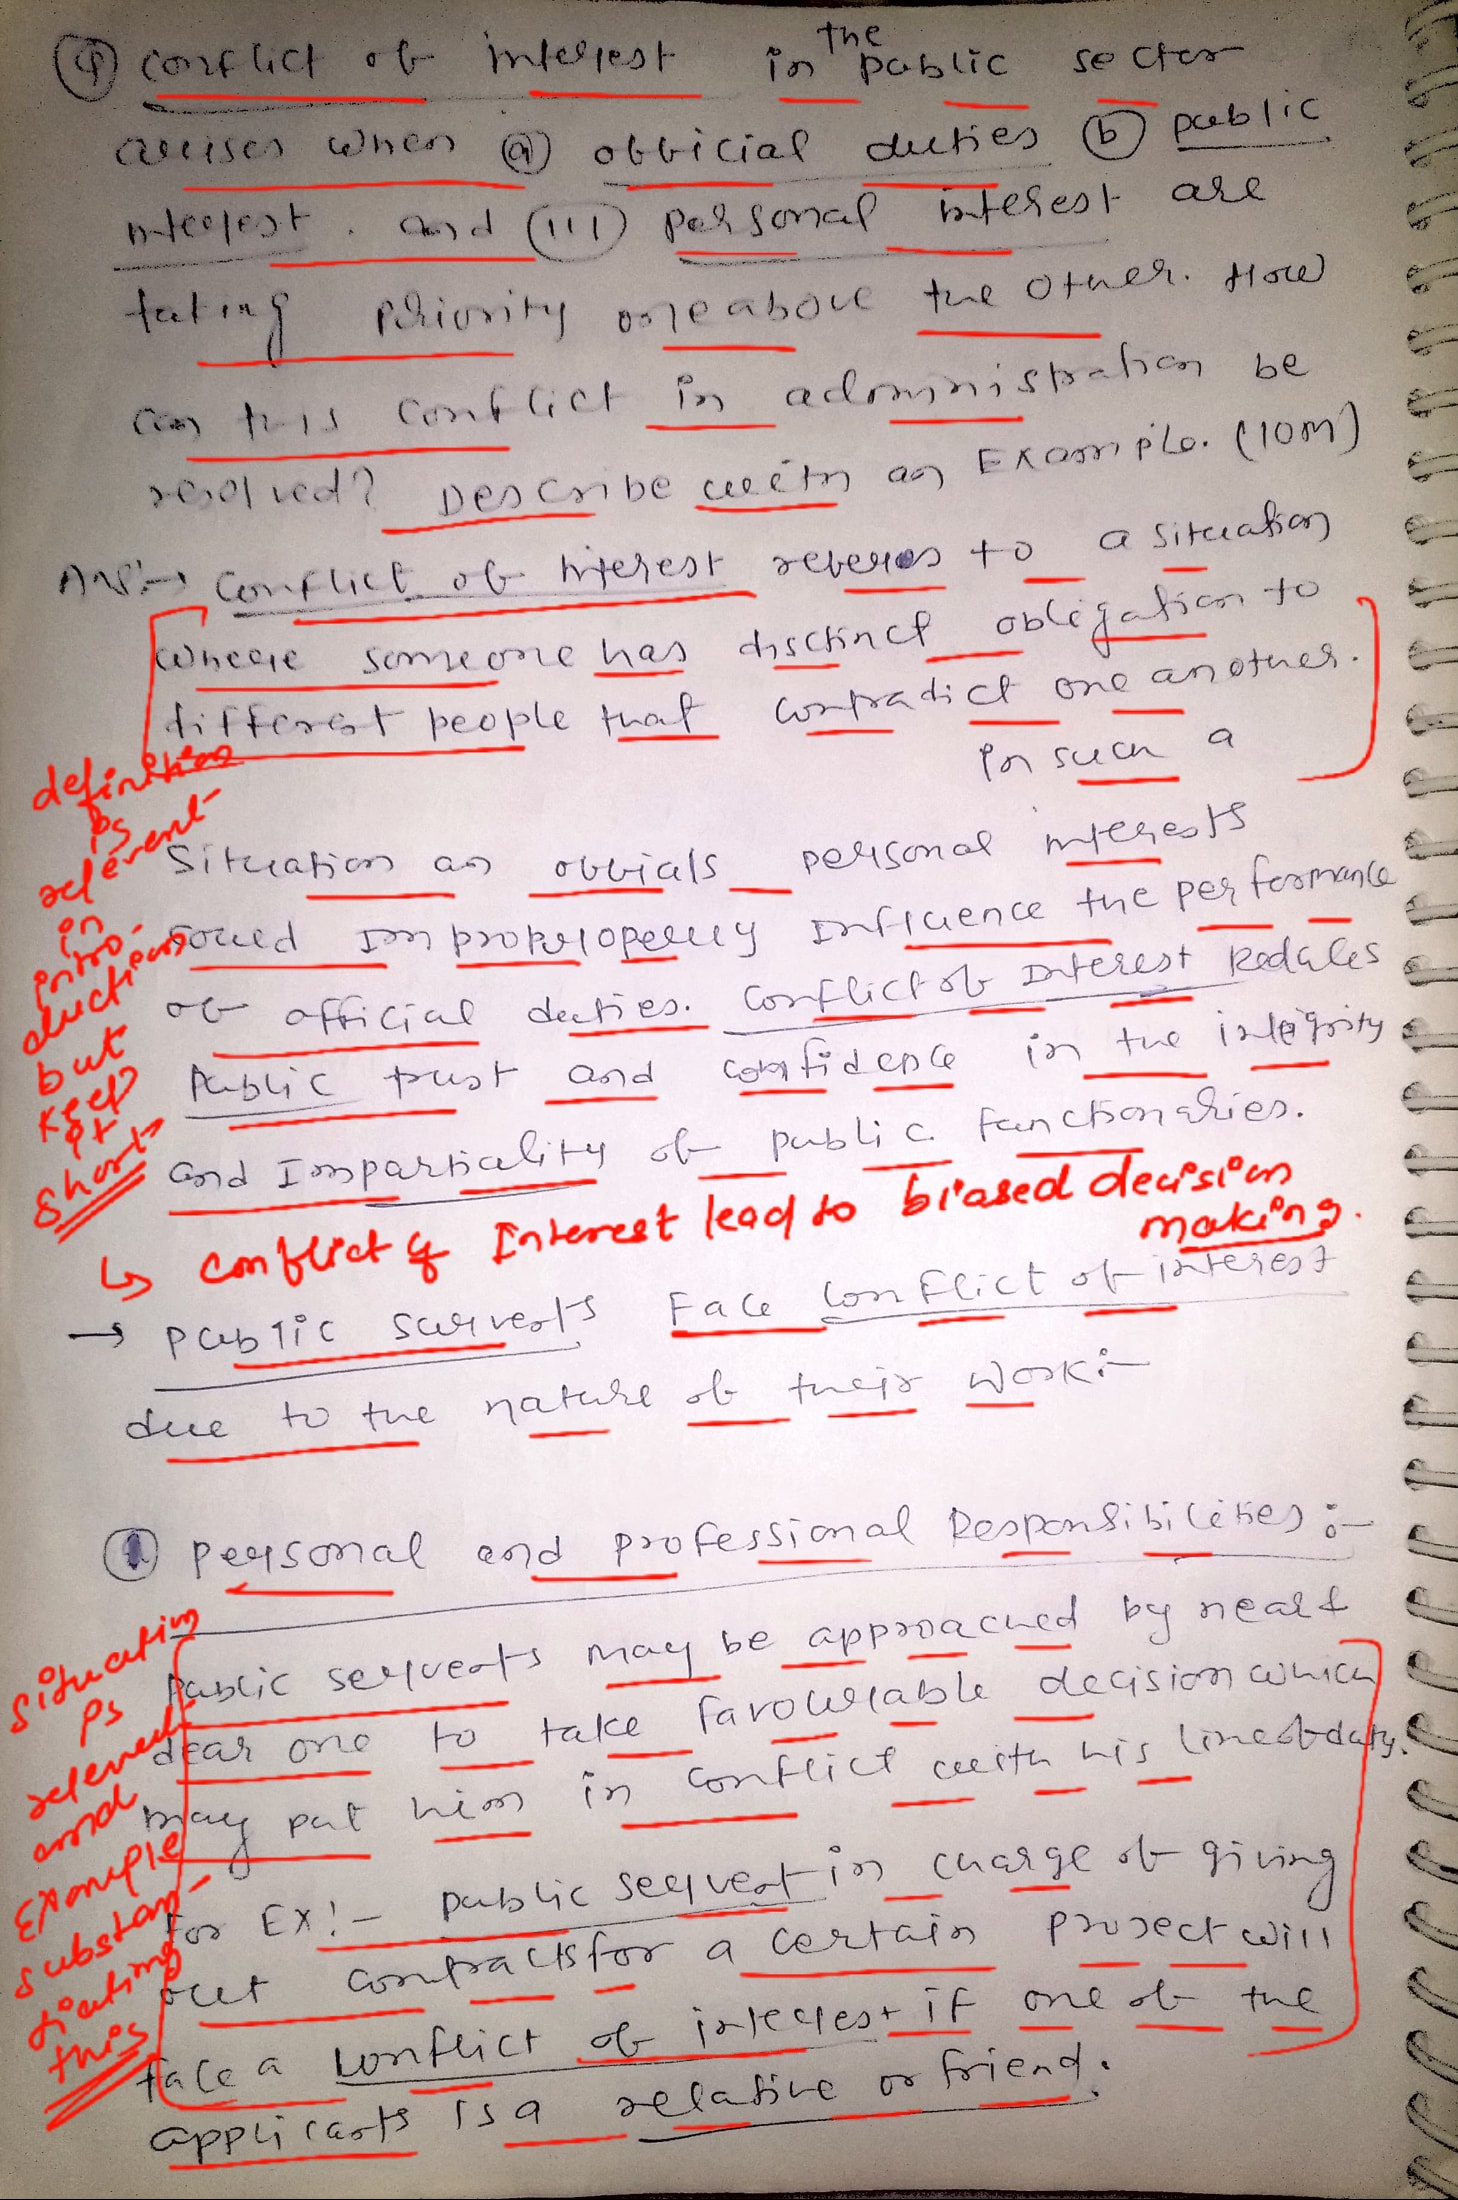 ④ conflict of interest in the public sector
arises when ⓐ official duties ⓑ public
interest. and (iii) personal interest are
taking priority one above the other. How
can this conflict in administration be
resolved? Describe with an Example. (10m)
Ans:→ Conflict of Interest referes to a situation
where someone has disctinct obligation to
different people that contradict one another.
In such a
situation an offials personal interests
could Improperopererly Influence the performance
of official duties. Conflict of Interest Redules
Public trust and confidence in the integrity
and Impartiality of public functionaries.
↳ conflict of Interest lead to biased decision
making.
→ public servents Face conflict of interest
due to the nature of their work:-
① personal and professional Responsibilities:-
Public servents may be approached by near &
dear one to take favourable decision which
may put him in conflict with his line of duty.
For Ex:- public servent in charge of giving
out contracts for a certain project will
face a conflict of interest if one of the
applicants is a relative or friend.
definition
is
relevent
in
intro-
duction
but
keep
it
short
situation
is
relevent
and
Example
substan-
tiating
this